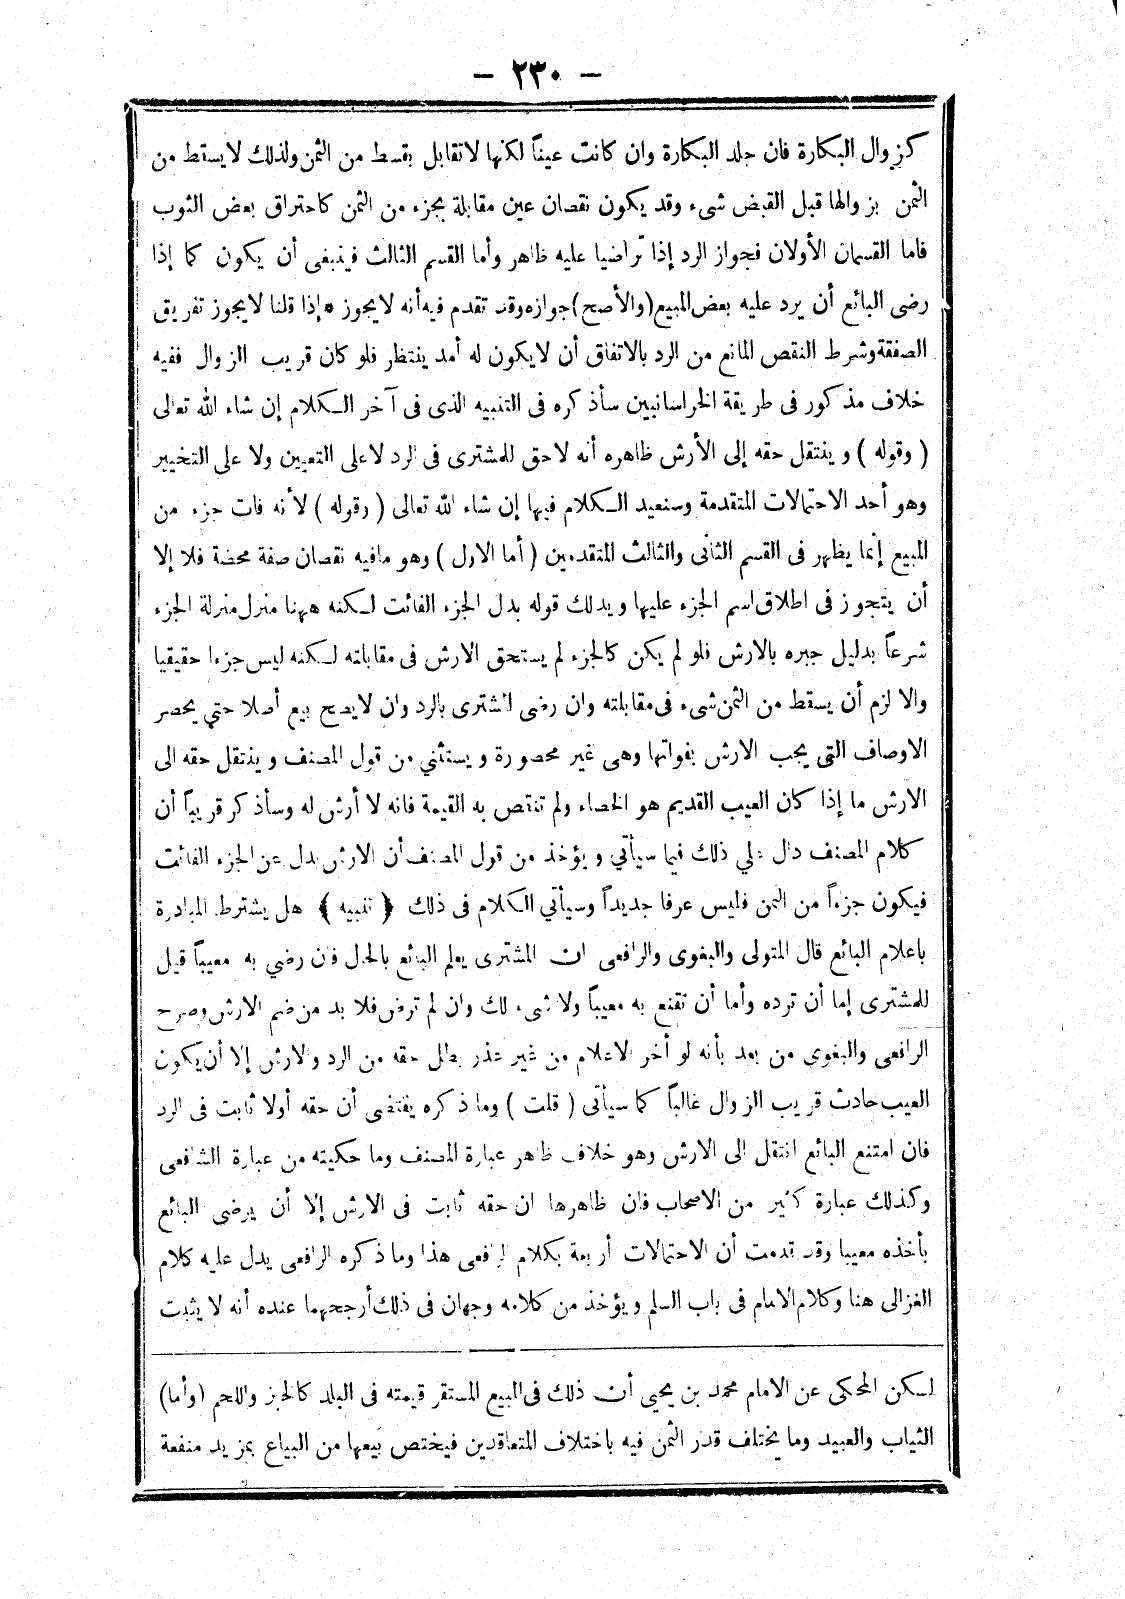 — ٢٣٠ —
كزوال البكارة فان جلد البكارة وان كانت عيناً لكنها لاتقابل بقسط من الثمن ولذلك لايسقط من
الثمن بزوالها قبل القبض شىء وقد يكون نقصان عين مقابلة بجزء من الثمن كاحتراق بعض الثوب
فاما القسمان الأولان فجواز الرد إذا تراضيا عليه ظاهر وأما القسم الثالث فينبغى أن يكون كما إذا
رضى البائع أن يرد عليه بعض المبيع (والأصح) جوازه وقد تقدم فيه أنه لايجوز * إذا قلنا لايجوز تفريق
الصفقة وشرط النقص المانع من الرد بالاتفاق أن لايكون له أمد ينتظر فلو كان قريب الزوال ففيه
خلاف مذكور فى طريقة الخراسانيين سأذكره فى التنبيه الذى فى آخر الكلام إن شاء الله تعالى
( وقوله ) وينتقل حقه إلى الأرش ظاهره أنه لاحق للمشترى فى الرد لاعلى التعيين ولا على التخيير
وهو أحد الاحتمالات المتقدمة وسنعيد الكلام فيها إن شاء الله تعالى ( وقوله ) لأنه فات جزء من
المبيع إنما يظهر فى القسم الثانى والثالث المتقدمين ( أما الاول ) وهو مافيه نقصان صفة محضة فلا إلا
أن يتجوز فى اطلاق اسم الجزء عليها ويدلك قوله بدل الجزء الفائت لكنه ههنا منزل منزلة الجزء
شرعاً بدليل جبره بالارش فلو لم يكن كالجزء لم يستحق الارش فى مقابلته لكنه ليس جزءا حقيقيا
والا لزم أن يسقط من الثمن شىء فى مقابلته وان رضى المشترى بالرد وان لايصح بيع أصلا حتي يحصر
الاوصاف التى يجب الارش بفواتها وهى غير محصورة ويستثني من قول المصنف وينتقل حقه الى
الارش ما إذا كان العيب القديم هو الخصاء ولم تنتقص به القيمة فانه لا أرش له وسأذكر قريباً أن
كلام المصنف دال على ذلك فيما سيأتي ويؤخذ من قول المصنف أن الارش بدل عن الجزء الفائت
فيكون جزءاً من الثمن فليس عرفا جديداً وسيأتي الكلام فى ذلك ﴿ تنبيه ﴾ هل يشترط المبادرة
باعلام البائع قال المتولى والبغوى والرافعى ان المشترى يعلم البائع بالحال فان رضي به معيباً قيل
للمشترى إما أن ترده وأما أن تقنع به معيباً ولا شىء لك وان لم ترض فلا بد من ضم الارش وصرح
الرافعى والبغوى من بعد بأنه لو أخر الاعلام من غير عذر بطل حقه من الرد والارش إلا أن يكون
العيب حادث قريب الزوال غالباً كما سيأتى ( قلت ) وما ذكره يقتضى أن حقه أولا ثابت فى الرد
فان امتنع البائع انتقل الى الارش وهو خلاف ظاهر عبارة المصنف وما حكيته من عبارة الشافعى
وكذلك عبارة كثير من الاصحاب فان ظاهرها ان حقه ثابت فى الارش إلا أن يرضى البائع
بأخذه معيبا وقد قدمت أن الاحتمالات أربعة بكلام الرافعى هذا وما ذكره الرافعى يدل عليه كلام
الغزالى هنا وكلام الامام فى باب السلم ويؤخذ من كلامه وجهان فى ذلك أرجحهما عنده أنه لا يثبت
لكن المحكى عن الامام محمد بن يحيى أن ذلك فى المبيع المستقر قيمته فى البلد كالخبز واللحم (وأما)
الثياب والعبيد وما يختلف قدر الثمن فيه باختلاف المتعاقدين فيختص بيعها من البياع بمزيد منفعة